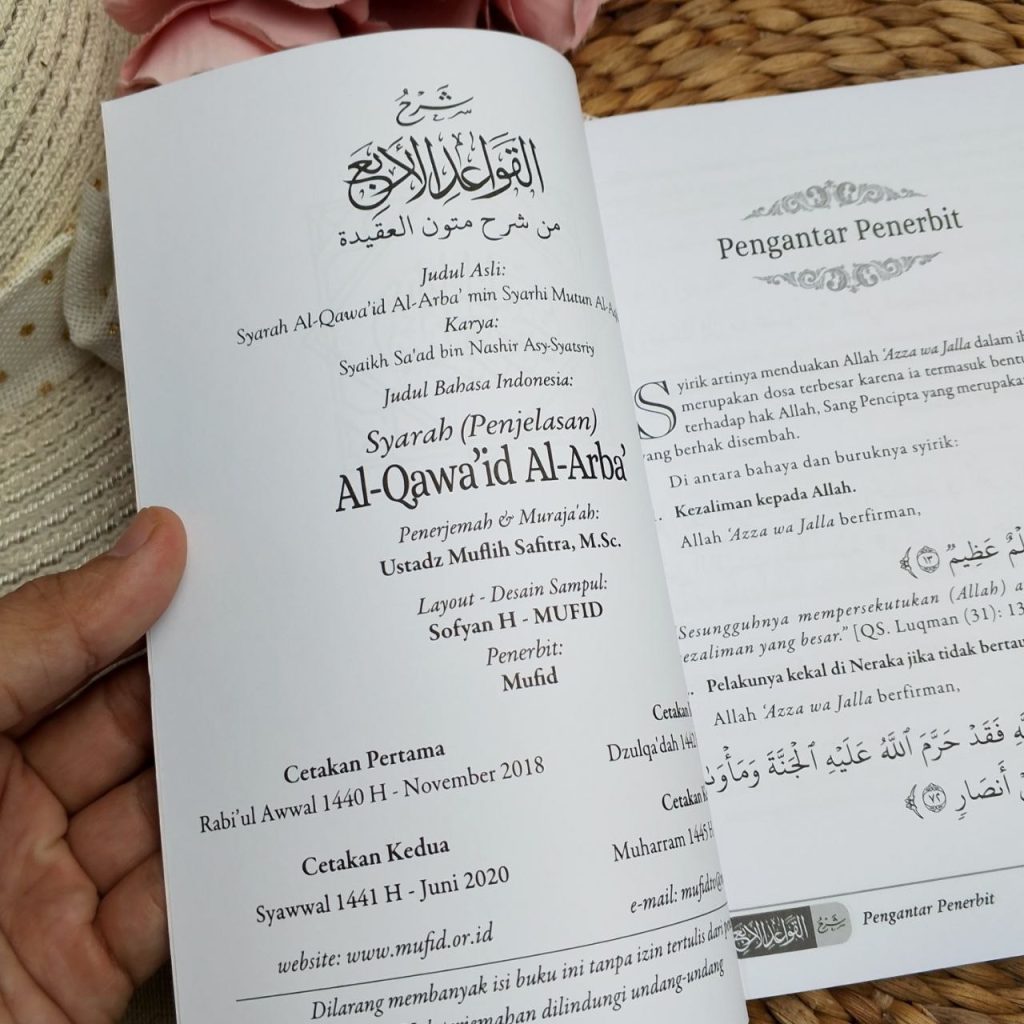 شرح
القواعد الأربع
من شرح متون العقيدة
Judul Asli:
Syarah Al-Qawa'id Al-Arba' min Syarhi Mutun
Karya:
Syaikh Sa'ad bin Nashir Asy-Syatsriy
Judul Bahasa Indonesia:
Syarah (Penjelasan)
Al-Qawa'id Al-Arba'
Penerjemah & Muraja'ah:
Ustadz Muflih Safitra, M.Sc.
Layout - Desain Sampul:
Sofyan H - MUFID
Penerbit:
Mufid
Cetakan Pertama
Rabi'ul Awwal 1440 H - November 2018
Cetakan Kedua
Syawwal 1441 H - Juni 2020
Cetakan
Dzulqa'dah
Cetakan
Muharram 1445 H
website: www.mufid.or.id
e-mail:
Dilarang membanyak isi buku ini tanpa izin tertulis dari
dilindungi undang-undang
Pengantar Penerbit
Syirik artinya menduakan Allah 'Azza wa Jalla dalam
merupakan dosa terbesar karena ia termasuk
terhadap hak Allah, Sang Pencipta yang merupakan
yang berhak disembah.
Di antara bahaya dan buruknya syirik:
Kezaliman kepada Allah.
Allah 'Azza wa Jalla berfirman,
عَظِيمٌ ١٣
"Sesungguhnya mempersekutukan (Allah)
kezaliman yang besar." [QS. Luqman (31): 13
Pelakunya kekal di Neraka jika tidak
Allah 'Azza wa Jalla berfirman,
فَقَدْ حَرَّمَ ٱللَّهُ عَلَيْهِ ٱلْجَنَّةَ
أَنصَارٍ ٧٢
شرح القواعد الأربع
Pengantar Penerbit